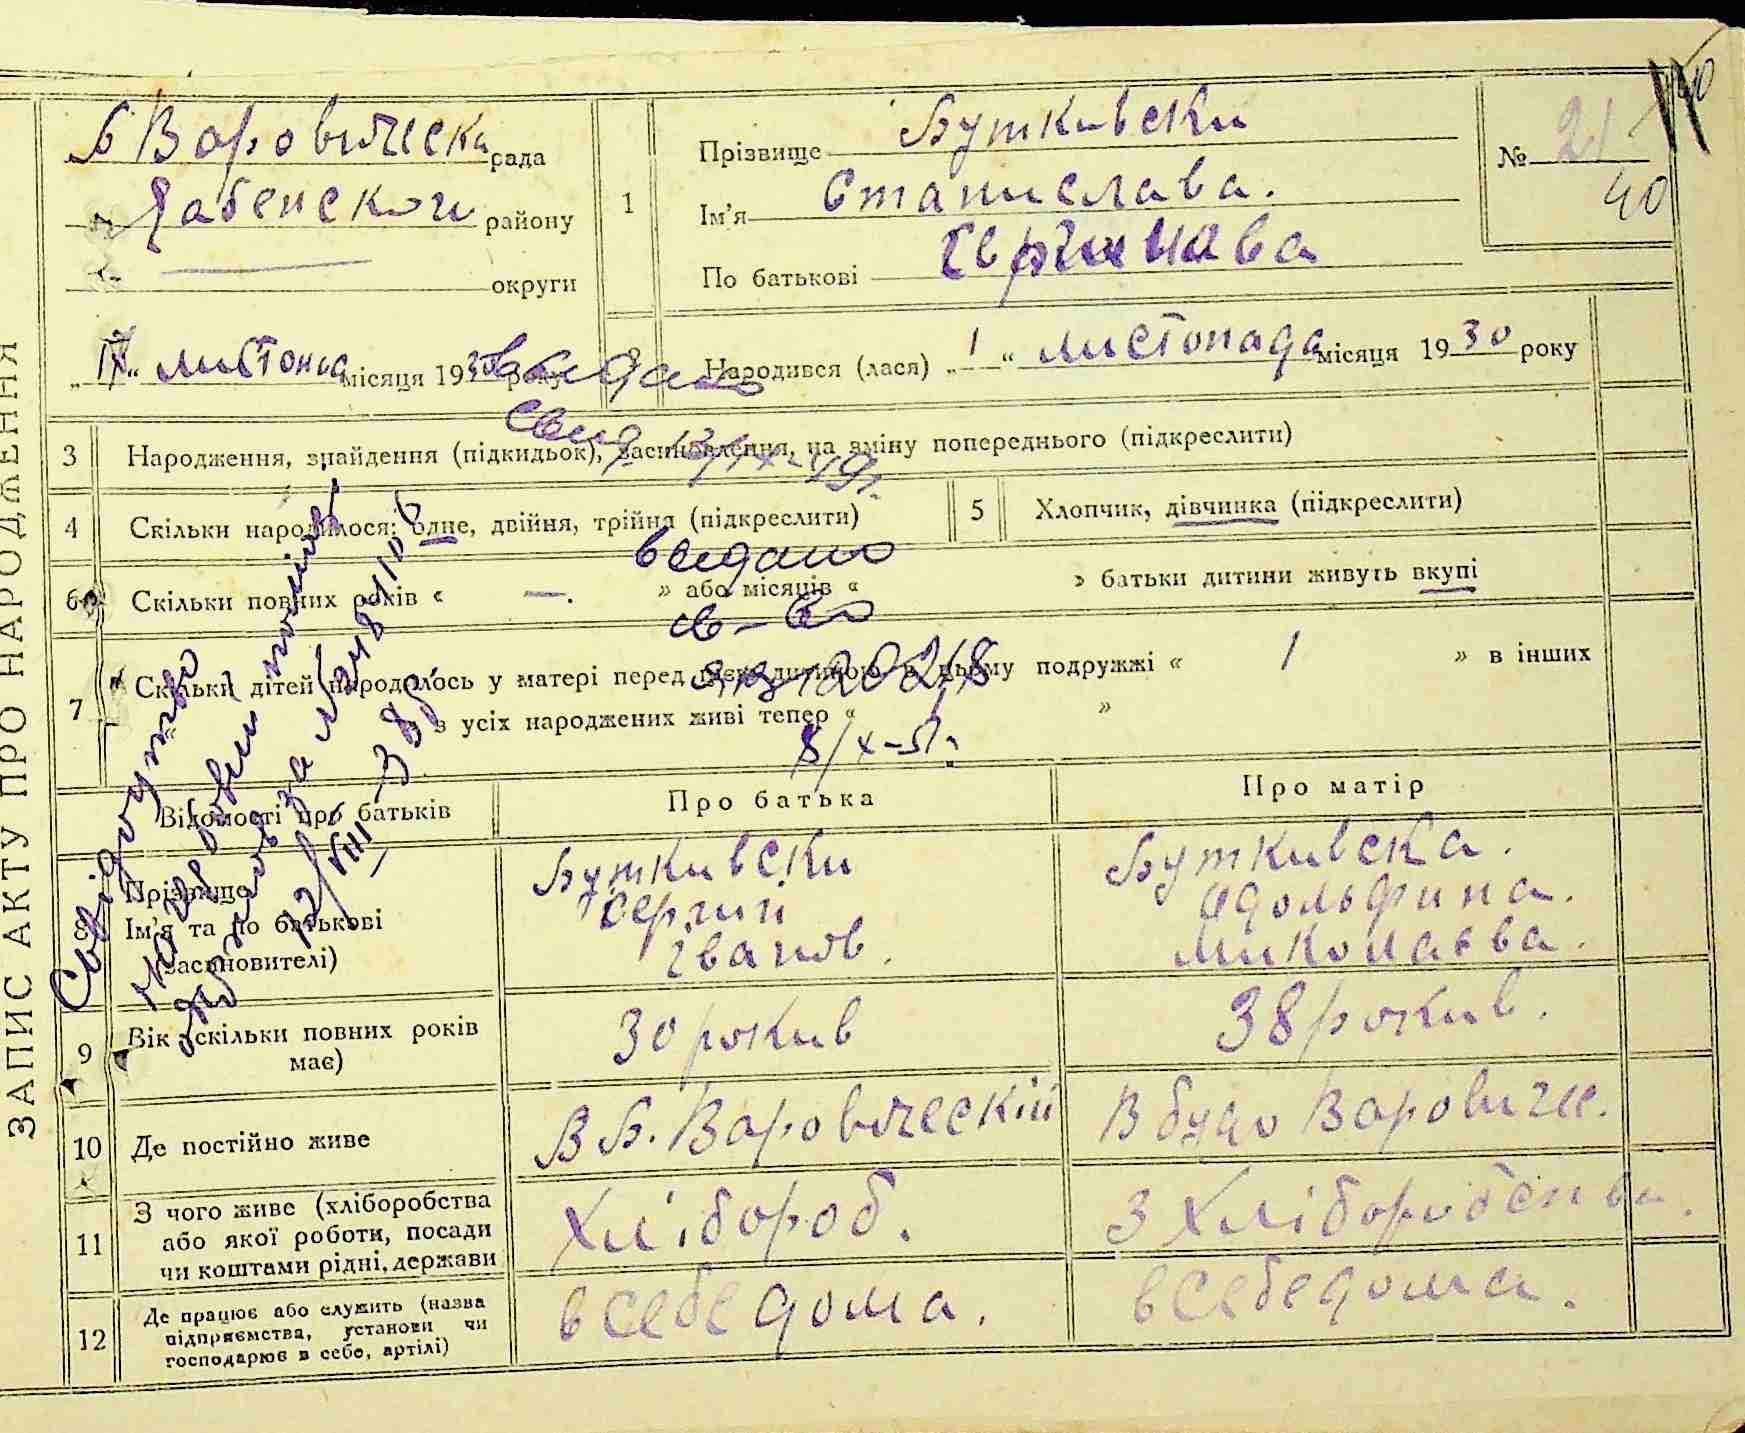 ЗАПИС АКТУ ПРО НАРОДЖЕННЯ
Б Воровическа рада
району
округи
1
Прізвище Буткивски
Ім'я Станислава.
По батькові
№ 21
40
„ “ листопада місяця 1930 року
Народився (лася) „1“ листопада місяця 1930 року
видано
3 Народження, знайдення (підкидьок), засиновлення, на зміну попереднього (підкреслити)
4 Скільки народилося: одне, двійня, трійня (підкреслити)
5 Хлопчик, дівчинка (підкреслити)
видано
6 Скільки повних років « —. » або місяців « » батьки дитини живуть вкупі
св-во
7 Скільки дітей народилось у матері перед цією дитиною в цьому подружжі « 1 » в інших
з усіх народжених живі тепер « »
8/X-51г.
Свідоцтво
Відомості про батьків
Про батька
Про матір
8 Прізвище
Ім'я та по батькові
(засиновителі)
Буткивски
Сергий
Іванов.
Буткивска.
Адольфина.
Миколаевa.
9 Вік (скільки повних років має)
30 рокив
38 рокив.
10 Де постійно живе
В Б. Воровическій
В будо Воровиче.
11 З чого живе (хліборобства
або якої роботи, посади
чи коштами рідні, держави
Хлібороб.
З Хліборобства.
12 Де працює або служить (назва
підприємства, установи чи
господарює в себе, артілі)
в себе дома.
в себе дома.